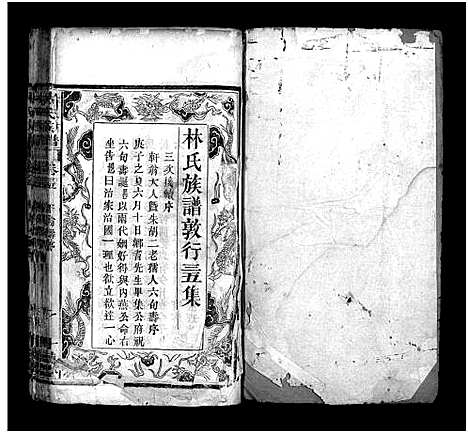 林氏族譜敦行五集
三次接輯序
軒翁大人暨朱胡二老孺人六旬壽序
庚子之夏六月十日鄉耆先生畢集公府祝
六旬壽誕愚以兩代姻好得與內燕公命右
坐告愚曰治家治國一理也欲立欲達一心